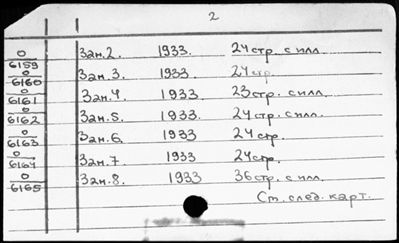 2
О
6159 Зан.2. 1933. 24 стр. с илл.
О
6160 Зан.3. 1933. 24 стр.
О
6161 Зан.4. 1933. 23 стр. с илл.
О
6162 Зан.5. 1933. 24 стр. с илл.
О
6163 Зан.6. 1933 24 стр.
О
6164 Зан.7. 1933 24 стр.
О
6165 Зан.8. 1933 36 стр. с илл.
См. след. карт.